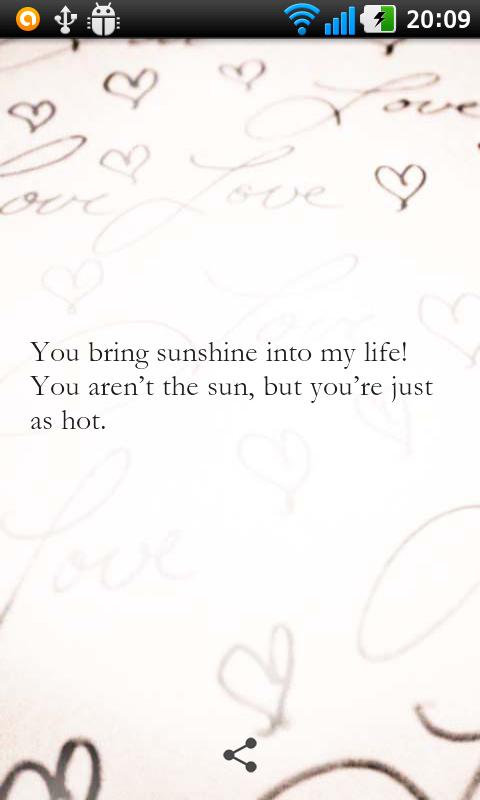 20:09
Love
Love
ove
Love
You bring sunshine into my life!
You aren’t the sun, but you’re just
as hot.
Love